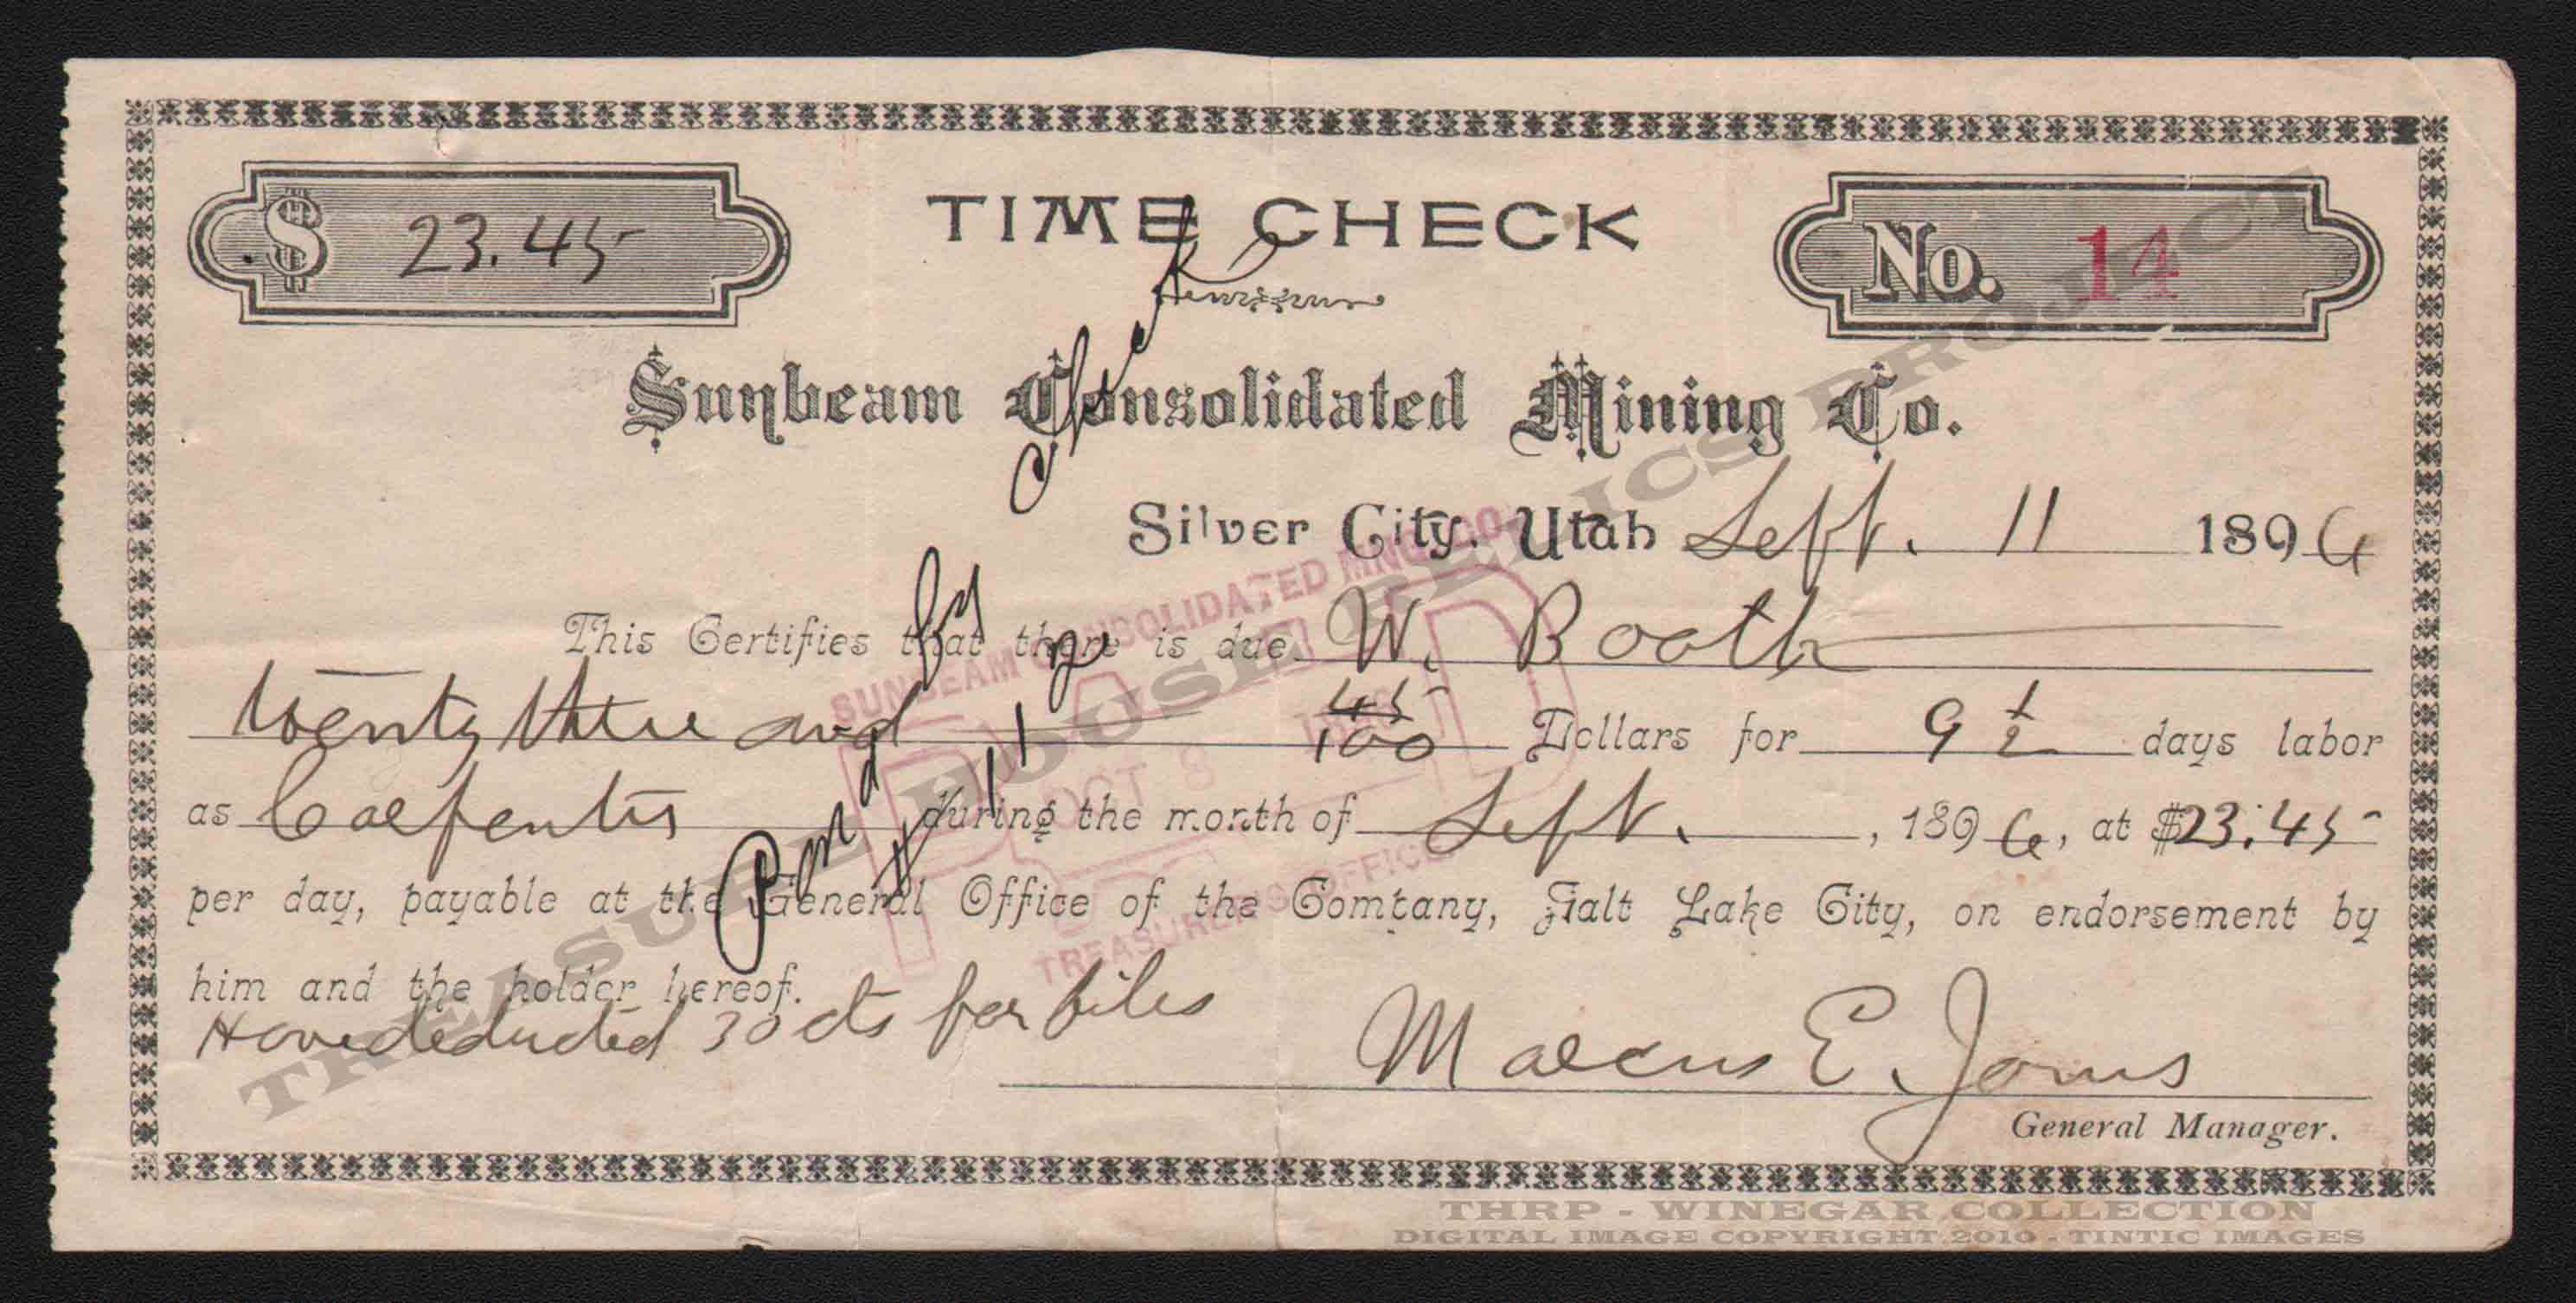 TIME CHECK
$ 23.45
No. 14
Sunbeam Consolidated Mining Co.
Silver City, Utah Sept. 11 1896
This Certifies that there is due W. Booth
twenty three and 45/100 Dollars for 9 1/2 days labor
as Carpenter during the month of Sept., 1896, at $23.45
per day, payable at the General Office of the Company, Salt Lake City, on endorsement by
him and the holder hereof.
Have deducted 30 cts for files
Marcus E. Jones
General Manager.
Pmd by
Check
# 112
SUNBEAM CONSOLIDATED MNG. CO.
PAID
OCT 8 1896
TREASURER'S OFFICE
TREASURE HOUSE RELICS PROJECT
THRP - WINEGAR COLLECTION
DIGITAL IMAGE COPYRIGHT 2010 - TINTIC IMAGES